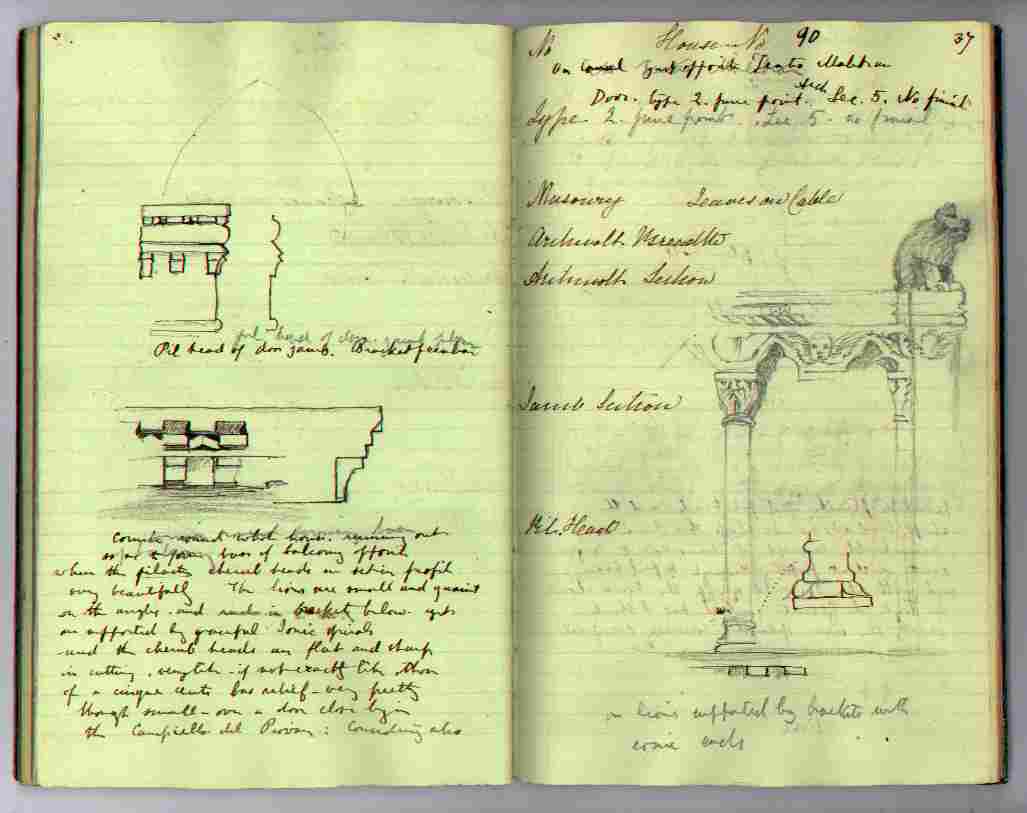 2.
Pil head of door jamb. Bracket
Cornice round whole house. running out
as far as forms base of balcony
where the pilaster cherub heads in section profile
very beautifully The lions are small and quaint
on the angles. and made in bracket below.
are supported by graceful Ionic spirals
and the cherub heads are flat and sharp
in cutting. very like - if not exactly like, those
of a cinque cento bas relief - very pretty
though small - over a door close by in
the Campiello del Piovan: Considering also
No House No 90 37
On opposite
Door. type 2. pure point. Arch Sec. 5. No finial.
Type 2. pure point. Sec 5. no finial
Masonry Leaves on Cable
Archivolt
Archivolt Section
Jamb Section
Pil. Head
on lions supported by brackets with
ionic ends